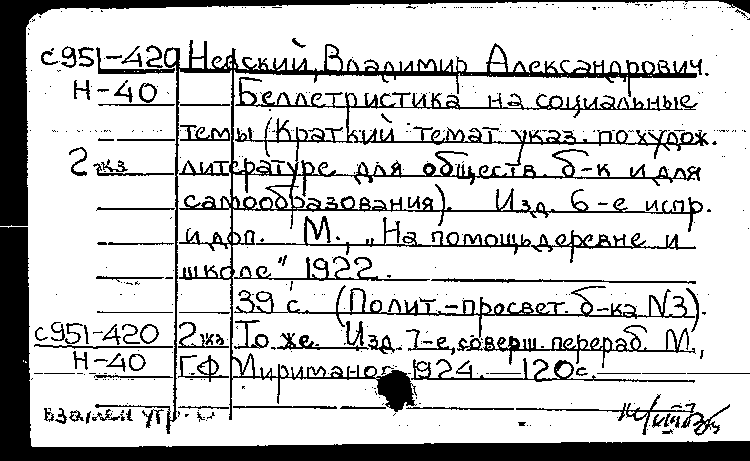 с951-420 Невский, Владимир Александрович.
Н-40 Беллетристика на социальные
темы (Краткий темат. указ. по худож.
2 экз литературе для обществ. б-к и для
самообразования). Изд. 6-е испр.
и доп. М., „На помощь деревне и
школе", 1922.
39 с. (Полит.-просвет. б-ка N3).
с951-420 2 экз То же. Изд. 7-е, соверш. перераб. М.,
Н-40 Г.Ф. Мириманов 1924. 120 с.
взамен утр.